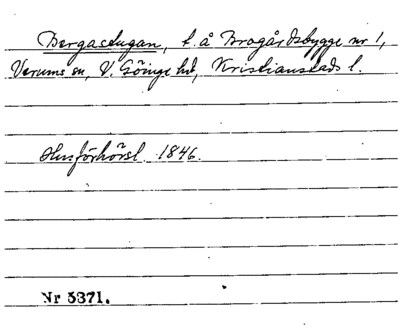 Bergastugan, t. å Brogårdsbygge nr 1,
Verums sn, V. Göinge hd, Kristianstads l.
Husförhörsl. 1846.
Nr 5371.